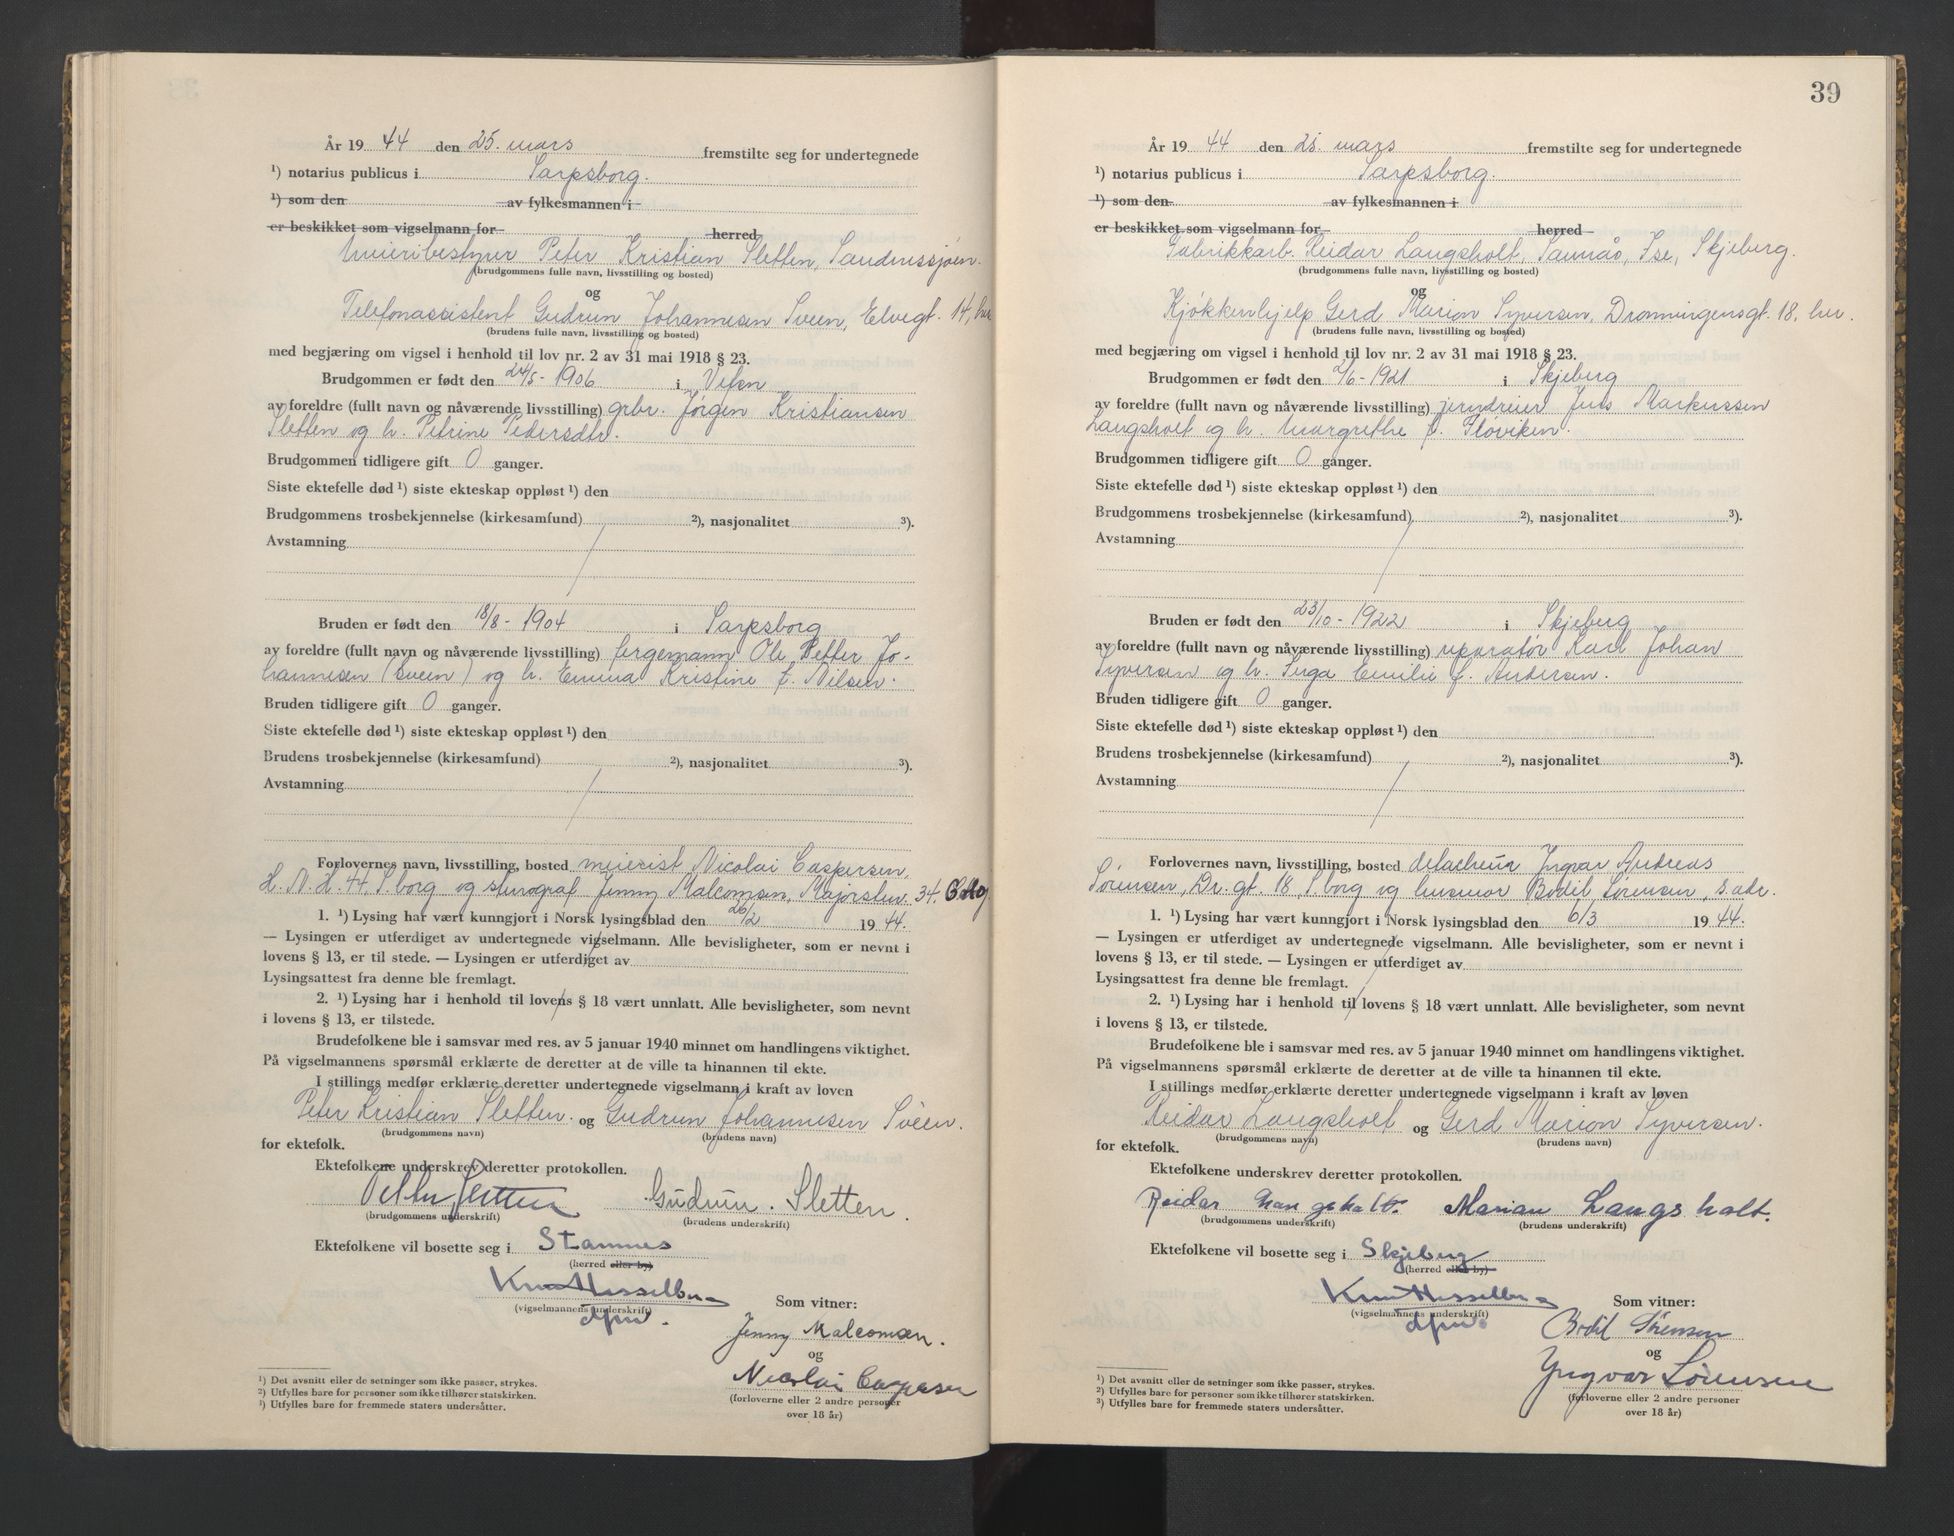 År 19 44 den 25. mars fremstilte seg for undertegnede
¹) notarius publicus i Sarpsborg.
¹) som den av fylkesmannen i
er beskikket som vigselmann for herred
Meieribestyrer Peter Kristian Sletten, Sandnessjøen.
(brudgommens fulle navn, livsstilling og bosted)
og
Telefonassistent Gudrun Johannesen Sveen, Elvegt. 14, her
(brudens fulle navn, livsstilling og bosted)
med begjæring om vigsel i henhold til lov nr. 2 av 31 mai 1918 § 23.
Brudgommen er født den 24/5 - 1906 i Vefsn
av foreldre (fullt navn og nåværende livsstilling) grbr. Jørgen Kristiansen
Sletten og h. Petrine Pedersdtr.
Brudgommen tidligere gift 0 ganger.
Siste ektefelle død ¹) siste ekteskap oppløst ¹) den
Brudgommens trosbekjennelse (kirkesamfund) ²), nasjonalitet ³).
Avstamning
Bruden er født den 18/8 - 1904 i Sarpsborg
av foreldre (fullt navn og nåværende livsstilling) fergemann Ole Petter Jo-
hannesen (Sveen) og h. Emma Kristine f. Nilsen.
Bruden tidligere gift 0 ganger.
Siste ektefelle død ¹) siste ekteskap oppløst ¹) den
Brudens trosbekjennelse (kirkesamfund) ²), nasjonalitet ³).
Avstamning
Forlovernes navn, livsstilling, bosted meierist Nicolai Caspersen,
H. N. H. 44, S.borg og stenograf Jenny Malcomsen, Majorstuv. 34. Oslo
1. ¹) Lysing har vært kunngjort i Norsk lysingsblad den 26/2 19 44.
— Lysingen er utferdiget av undertegnede vigselmann. Alle bevisligheter, som er nevnt i
lovens § 13, er til stede. — Lysingen er utferdiget av
Lysingsattest fra denne ble fremlagt.
2. ¹) Lysing har i henhold til lovens § 18 vært unnlatt. Alle bevisligheter, som nevnt
i lovens § 13, er tilstede.
Brudefolkene ble i samsvar med res. av 5 januar 1940 minnet om handlingens viktighet.
På vigselmannens spørsmål erklærte de deretter at de ville ta hinannen til ekte.
I stillings medfør erklærte deretter undertegnede vigselmann i kraft av loven
Peter Kristian Sletten. og Gudrun Johannesen Sveen.
(brudgommens navn) (brudens navn)
for ektefolk.
Ektefolkene underskrev deretter protokollen.
Petter Sletten Gudrun. Sletten.
(brudgommens underskrift) (brudens underskrift)
Ektefolkene vil bosette seg i Stamnes
(herred eller by)
Knut Hesselberg
(vigselmannens underskrift) Som vitner:
dfm.
Jenny Malcomsen.
og
Nicolai Caspersen
(forloverne eller 2 andre personer
over 18 år)
¹) Det avsnitt eller de setninger som ikke passer, strykes.
²) Utfylles bare for personer som ikke tilhører statskirken.
³) Utfylles bare for fremmede staters undersåtter.
39
År 19 44 den 25. mars fremstilte seg for undertegnede
¹) notarius publicus i Sarpsborg.
¹) som den av fylkesmannen i
er beskikket som vigselmann for herred
Fabrikkarb. Reidar Langsholt, Sannås, Ise, Skjeberg.
(brudgommens fulle navn, livsstilling og bosted)
og
Kjøkkenhjelp Gerd Marion Syversen, Dronningensgt. 18, her.
(brudens fulle navn, livsstilling og bosted)
med begjæring om vigsel i henhold til lov nr. 2 av 31 mai 1918 § 23.
Brudgommen er født den 2/6 - 1921 i Skjeberg
av foreldre (fullt navn og nåværende livsstilling) jerndreier Jens Markussen
Langsholt og h. Margrethe f. Fløviken.
Brudgommen tidligere gift 0 ganger.
Siste ektefelle død ¹) siste ekteskap oppløst ¹) den
Brudgommens trosbekjennelse (kirkesamfund) ²), nasjonalitet ³).
Avstamning
Bruden er født den 23/10 - 1922 i Skjeberg
av foreldre (fullt navn og nåværende livsstilling) reparatør Karl Johan
Syversen og h. Inga Emilie f. Andersen.
Bruden tidligere gift 0 ganger.
Siste ektefelle død ¹) siste ekteskap oppløst ¹) den
Brudens trosbekjennelse (kirkesamfund) ²), nasjonalitet ³).
Avstamning
Forlovernes navn, livsstilling, bosted detacheur Yngvar Andreas
Sørensen, Dr. gt. 18, S.borg og husmor Bodil Sørensen, s. adr.
1. ¹) Lysing har vært kunngjort i Norsk lysingsblad den 6/3 19 44.
— Lysingen er utferdiget av undertegnede vigselmann. Alle bevisligheter, som er nevnt i
lovens § 13, er til stede. — Lysingen er utferdiget av
Lysingsattest fra denne ble fremlagt.
2. ¹) Lysing har i henhold til lovens § 18 vært unnlatt. Alle bevisligheter, som nevnt
i lovens § 13, er tilstede.
Brudefolkene ble i samsvar med res. av 5 januar 1940 minnet om handlingens viktighet.
På vigselmannens spørsmål erklærte de deretter at de ville ta hinannen til ekte.
I stillings medfør erklærte deretter undertegnede vigselmann i kraft av loven
Reidar Langsholt og Gerd Marion Syversen.
(brudgommens navn) (brudens navn)
for ektefolk.
Ektefolkene underskrev deretter protokollen.
Reidar Langsholt. Marian Langsholt.
(brudgommens underskrift) (brudens underskrift)
Ektefolkene vil bosette seg i Skjeberg
(herred eller by)
Knut Hesselberg
(vigselmannens underskrift) Som vitner:
dfm.
Bodil Sørensen
og
Yngvar Sørensen
(forloverne eller 2 andre personer
over 18 år)
¹) Det avsnitt eller de setninger som ikke passer, strykes.
²) Utfylles bare for personer som ikke tilhører statskirken.
³) Utfylles bare for fremmede staters undersåtter.